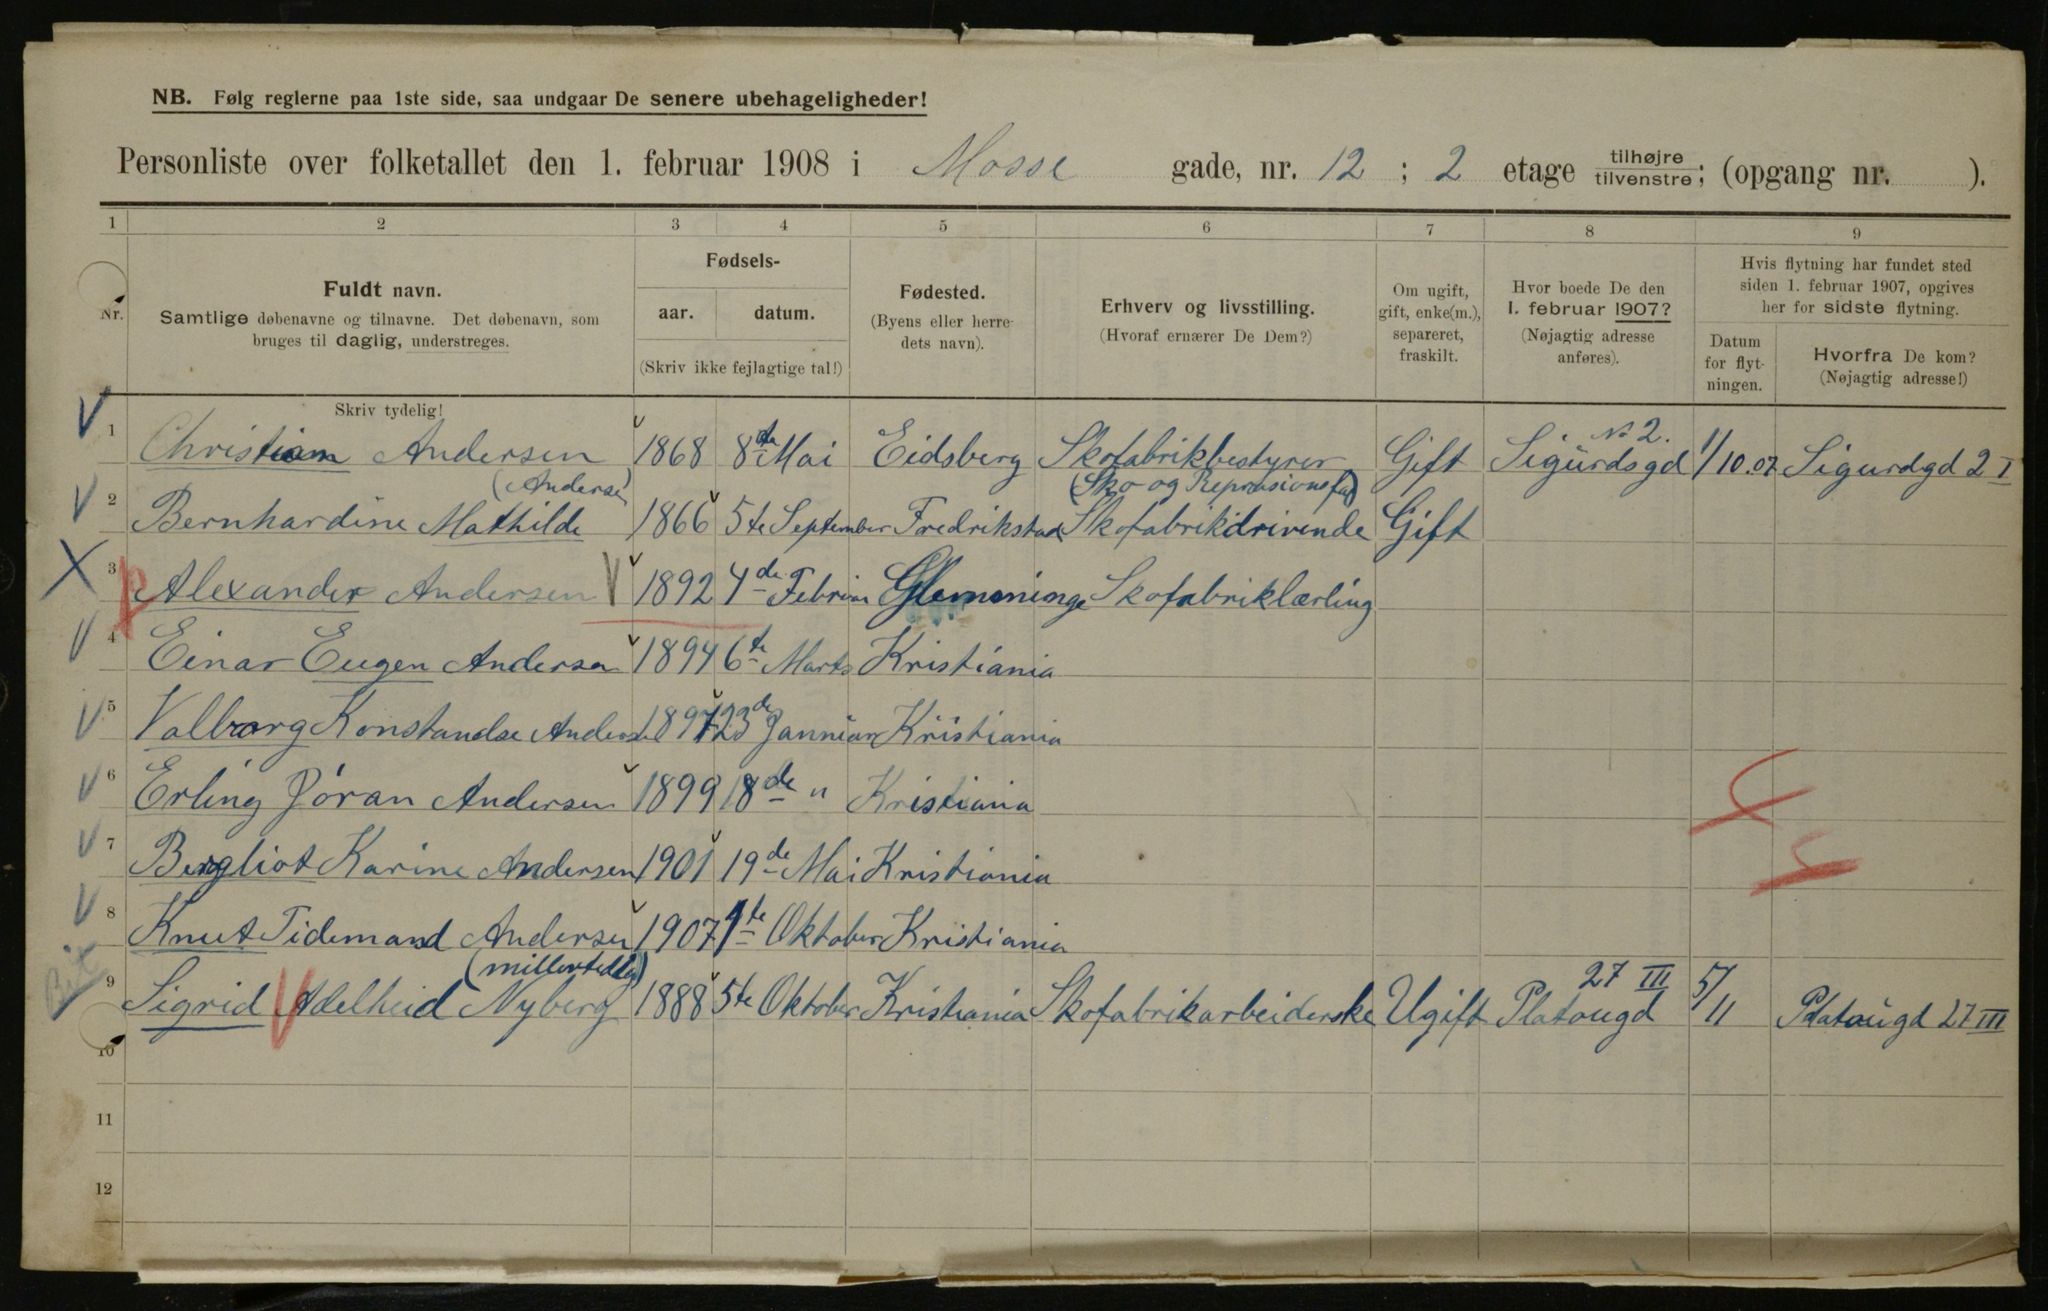 NB. Følg reglerne paa 1ste side, saa undgaar De senere ubehageligheder!
Personliste over folketallet den 1. februar 1908 i Mosse gade, nr. 12 ; 2 etage tilhøjre / tilvenstre; (opgang nr. ).
1 2 3 4 5 6 7 8 9
Nr.
Fuldt navn.
Samtlige døbenavne og tilnavne. Det døbenavn, som
bruges til daglig, understreges.
Skriv tydelig!
Fødsels-
aar. datum.
(Skriv ikke fejlagtige tal!)
Fødested.
(Byens eller herre-
dets navn).
Erhverv og livsstilling.
(Hvoraf ernærer De Dem?)
Om ugift,
gift, enke(m.),
separeret,
fraskilt.
Hvor boede De den
1. februar 1907?
(Nøjagtig adresse
anføres).
Hvis flytning har fundet sted
siden 1. februar 1907, opgives
her for sidste flytning.
Datum
for flyt-
ningen.
Hvorfra De kom?
(Nøjagtig adresse!)
No 2.
1 Christian Andersen 1868 8de Mai Eidsberg Skofabrikbestyrer Gift Sigurdsgd 1/10.07 Sigurdgd 2 I
(Andersen) (Sko og
2 Bernhardine Mathilde 1866 5te September Fredrikstad Skofabrikdrivende Gift
3 Alexander Andersen 1892 4de Februar Glemminge Skofabriklærling
4 Einar Eugen Andersen 1894 6te Marts Kristiania
5 Valborg Konstandse Andersen 1897 23de Januar Kristiania
6 Erling Jöran Andersen 1899 18de " Kristiania
7 Bergliot Karine Andersen 1901 19de Mai Kristiania
8 Knut Tidemand Andersen 1907 1te Oktober Kristiania
27 III
9 Sigrid Adelheid Nyberg 1888 5te Oktober Kristiania Skofabrikarbeiderske Ugift Platougd 5/11 Platougd 27 III
10
11
12